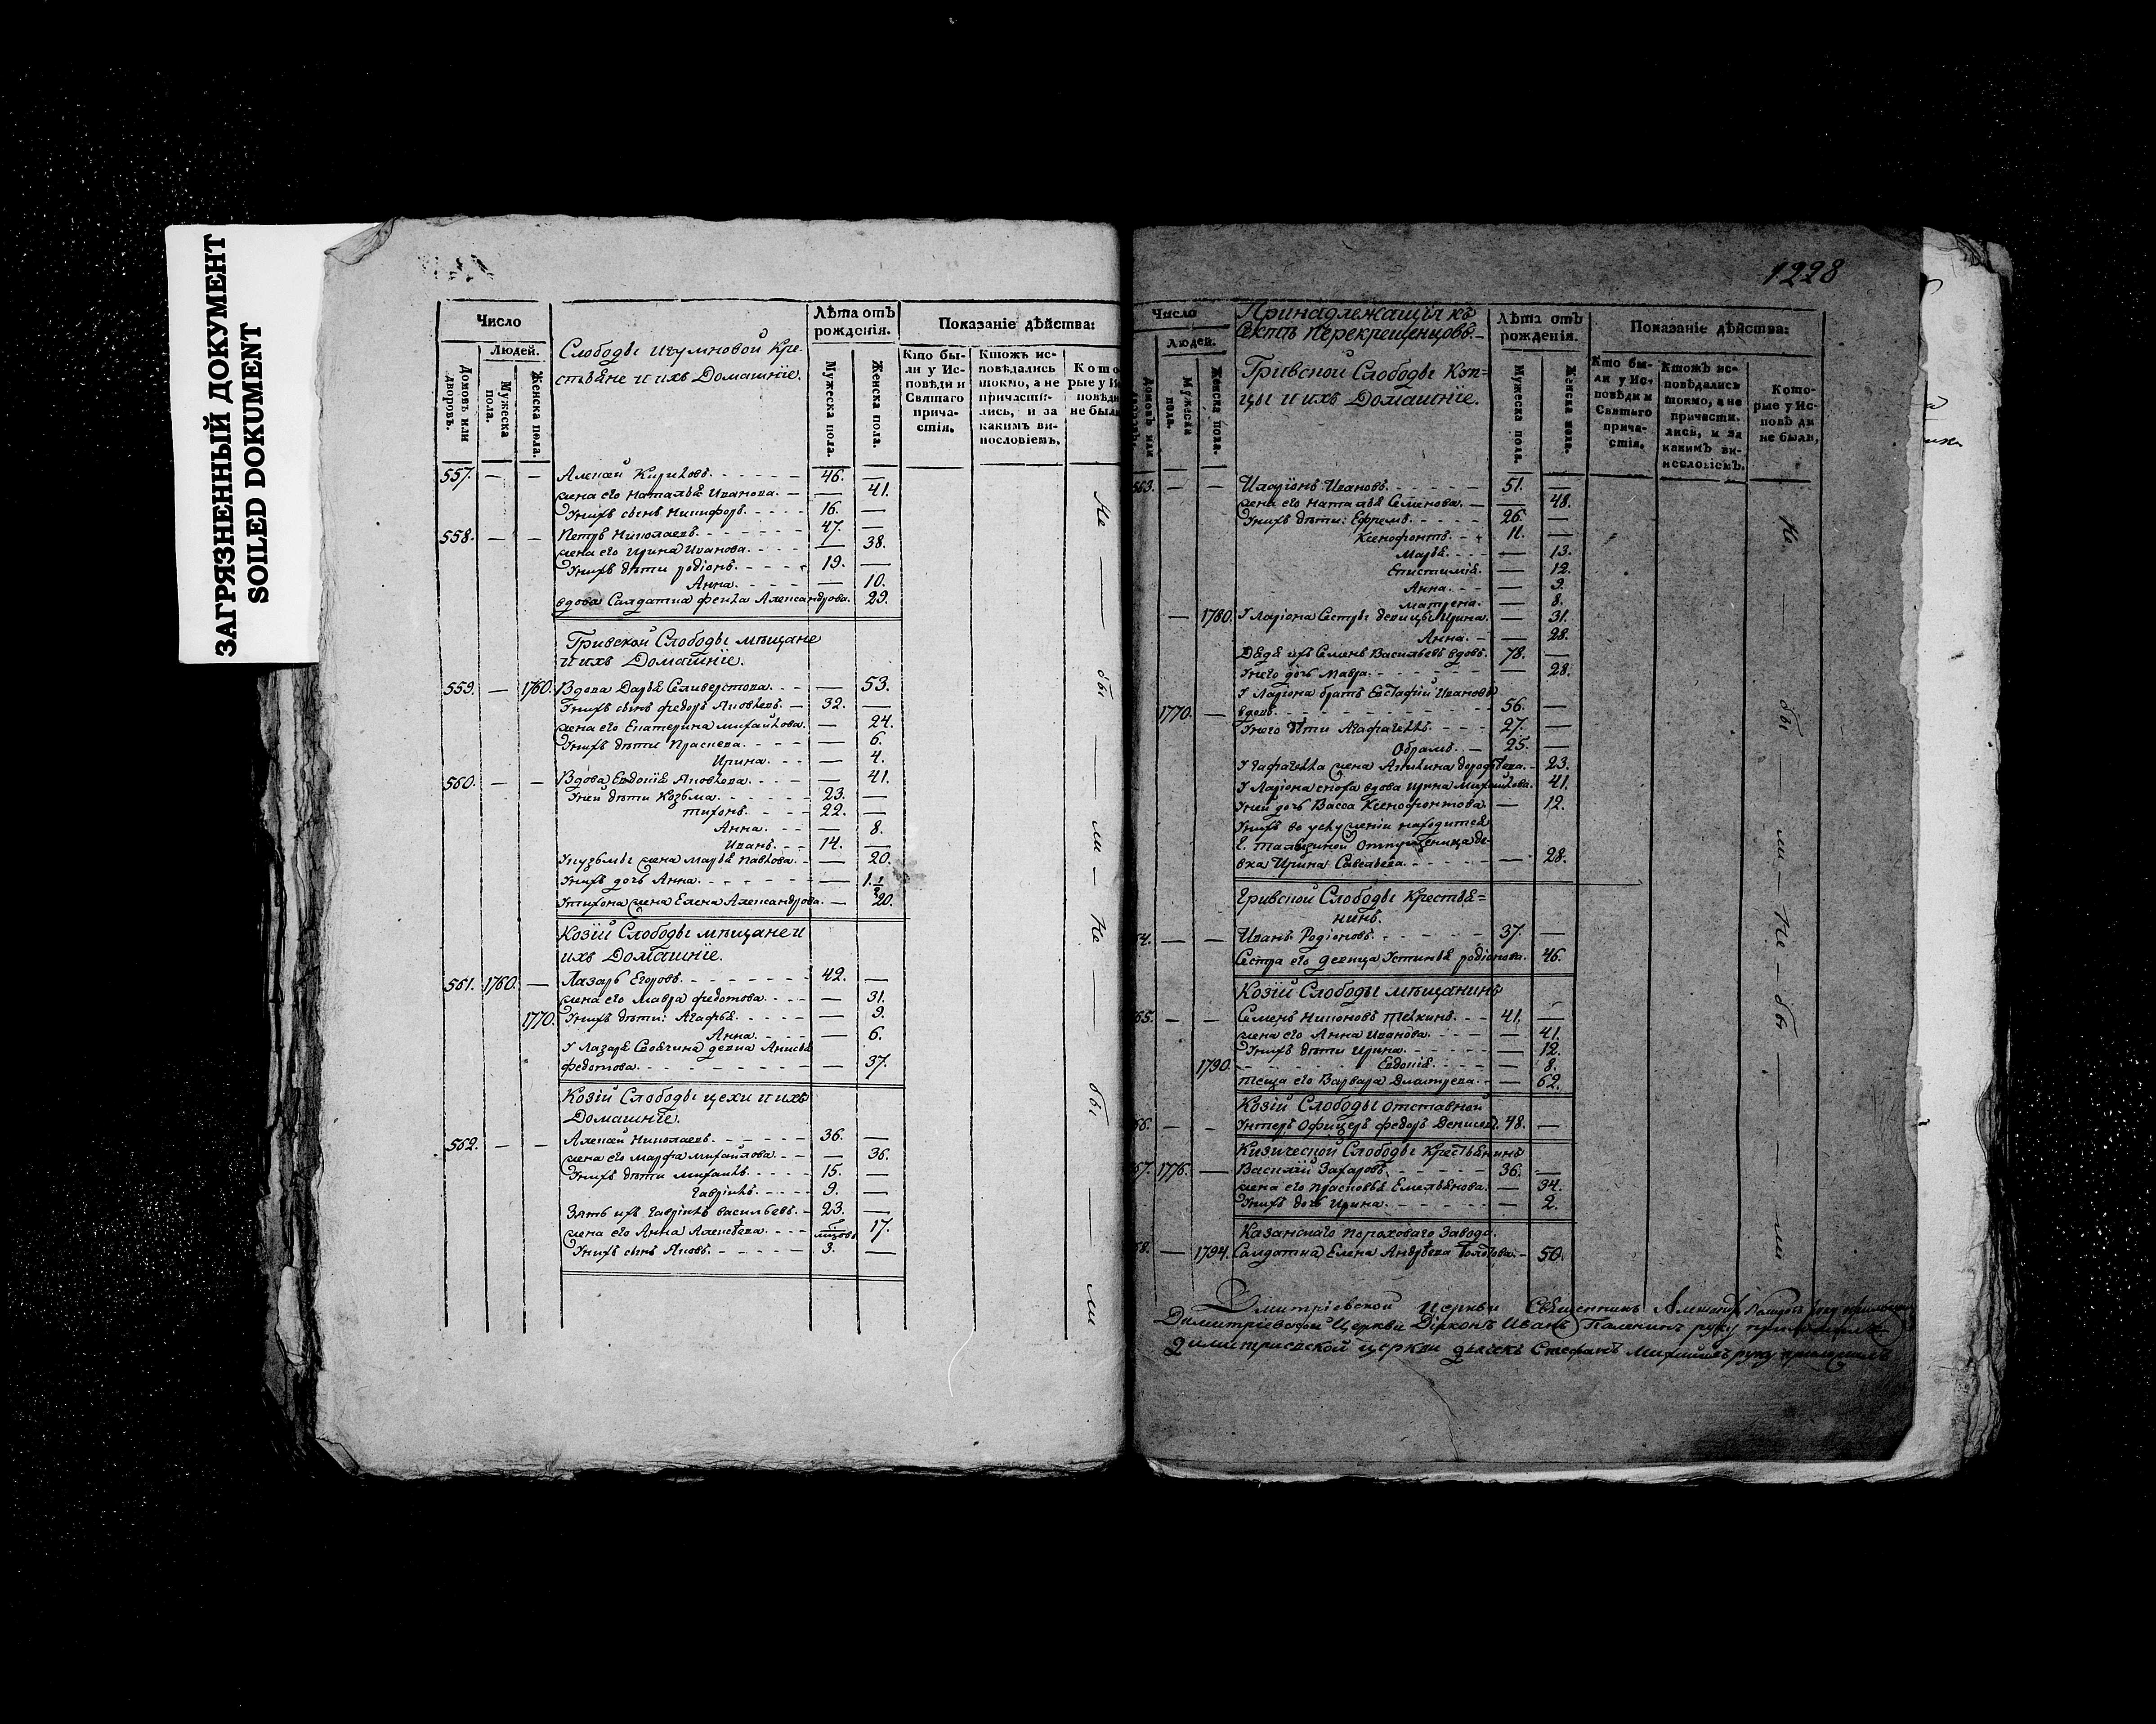 ЗАГРЯЗНЕННЫЙ ДОКУМЕНТ
SOILED DOKUMENT
Число
Людей.
Домовъ или дворовъ.
Мужеска пола.
Женска пола.
Слободы Игумновой Кре-
стьяне и ихъ Домашніе.
Лѣта отъ рожденія.
Мужеска пола.
Женска пола.
Показаніе дѣйства:
Кто бы-
ли у Ис-
повѣди и
Святаго
прича-
стія.
Ктожъ ис-
повѣдались
токмо, а не
причасти-
лись, и за
какимъ ви-
нословіемъ.
Кото
рые у И
повѣди
не были
557. — — Алексѣй Кириловъ. 46. —
жена его Наталья Иванова. — 41.
У нихъ сынъ Никифоръ. 16. —
558. — — Петръ Николаевъ. 47. —
жена его Ирина Иванова. — 38.
У нихъ дѣти Родіонъ. 19. —
Анна. — 10.
вдова Салдатка Фекла Александрова. 29.
Гривской Слободы мѣщане
и ихъ Домашніе.
559. — 1760. Вдова Дарья Селиверстова. — 53.
У нихъ сынъ Федоръ Яковлевъ. 32. —
жена его Екатерина Михайлова. — 24.
У нихъ дѣти Праскева. — 6.
Ирина. — 4.
560. — — Вдова Евдокія Яковлева. — 41.
У ней дѣти Козьма. 23. —
Тихонъ. 22. —
Анна. — 8.
Иванъ. 14. —
У Кузьмы жена Марья Павлова. — 20.
У нихъ дочь Анна. — 1.½
У Тихона жена Елена Александрова. — 20.
Козій Слободы мѣщане и
ихъ Домашніе.
561. 1760. — Лазарь Егоровъ. 42. —
жена его Мавра Федотова. — 31.
1770. У нихъ дѣти: Агафья. — 9.
Анна. — 6.
У Лазаря Своячина девка Анисья
Федотова. — 37.
Козій Слободы цехи и ихъ
Домашніе.
562. — — Алексѣй Николаевъ. 36. —
жена его Марфа Михайлова. — 36.
У нихъ дѣти Михаилъ. 15. —
Гаврилъ. 9. —
Зять ихъ Гаврилъ Васильевъ. 23. —
жена его Анна Алексѣева. 17.
У нихъ сынъ Яковъ. 3. —
Не — бы — ли — Не — бы — ли
1228
Число
Людей.
Домовъ или
Мужеска пола.
Женска пола.
Принадлежащія къ
Сектѣ Перекрещенцовъ.
Гривской Слободы Куп=
цы и ихъ Домашніе.
Лѣта отъ рожденія.
Мужеска пола.
Женска пола.
Показаніе дѣйства:
Кто бы-
ли у Ис-
повѣди и
Святаго
прича-
стія.
Ктожъ ис-
повѣдались
токмо, а не
причасти-
лись, и за
какимъ ви-
нословіемъ.
Кото-
рые у Ис-
повѣди
не были,
563. — — Иларіонъ Ивановъ. 51. —
жена его Наталья Семенова. — 48.
У нихъ дѣти: Ефремъ. 26. —
Ксенофонтъ. 11. —
Марья. — 13.
Епистимія. — 12.
Анна. — 9.
Матрена. — 8.
— 1780. У Ларіона Сестры девицы Ирина. — 31.
Анна. — 28.
Дядя ихъ Семенъ Васильевъ вдовъ. 78. —
У него дочь Мавра. — 28.
У Ларіона братъ Евстафій Ивановъ
1770. — вдовъ. 56. —
У него дѣти Агафагелъ. 27. —
Обрамъ. 25. —
У Гафагелла жена Акилина дорофѣева. 23.
У Ларіона сноха вдова Ирина Михайлова. 41.
У ней дочь Васса Ксенофонтова. — 12.
У нихъ во услуженіи находится
Г. отпущеница де-
вка Ирина Савельева. — 28.
Гривской Слободы Крестья=
нинъ.
64. — — Иванъ Родіоновъ. 37. —
Сестра его девица Устинья Родіонова. 46.
Козій Слободы мѣщанинъ
65. — — Семенъ Никоновъ 41. —
жена его Анна Иванова. — 41.
У нихъ дѣти Ирина. — 12.
1790. Евдокія. — 8.
теща его Варвара Дмитрева. — 62.
Козій Слободы отставной
66. — — Унтеръ Офицеръ Федоръ Денисовъ. 48. —
Кизической Слободы Крестьянинъ
67. 1776. — Василій Захаровъ. 36. —
жена его Прасковья Емельянова. — 34.
У нихъ дочь Ирина. — 2.
Казанскаго Пороховаго Завода.
68. — 1794. Салдатка Елена Андрѣева 50.
Не — бы — ли — Не — бы — ли
Димитріевской Церкви Священникъ Александръ руку приложилъ
Димитріевской Церкви Діяконъ Иванъ руку приложилъ
Димитриевской церкви дьячекъ Стефанъ Михайловъ руку приложилъ